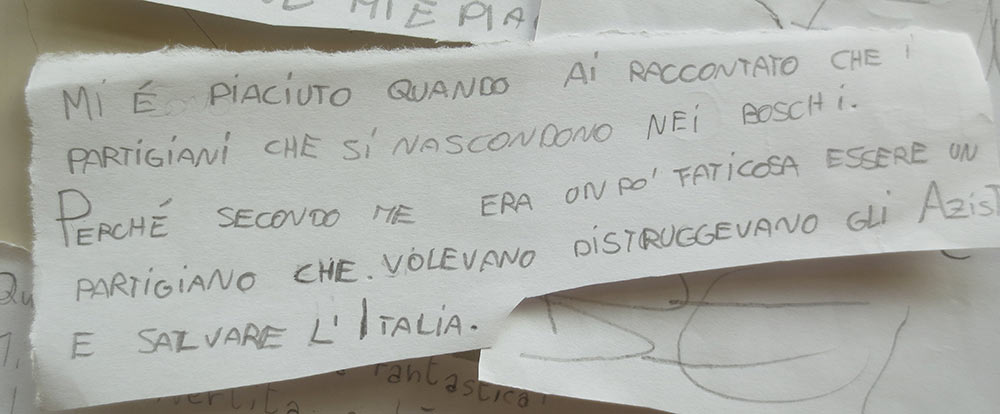 MIE PIA
MI É PIACIUTO QUANDO AI RACCONTATO CHE I
PARTIGIANI CHE SI NASCONDONO NEI BOSCHI.
PERCHÉ SECONDO ME ERA UN PO' FATICOSA ESSERE UN
PARTIGIANO CHE. VOLEVANO DISTRUGGEVANO GLI AZIST
E SALVARE L'ITALIA.
Qu
fantastica!